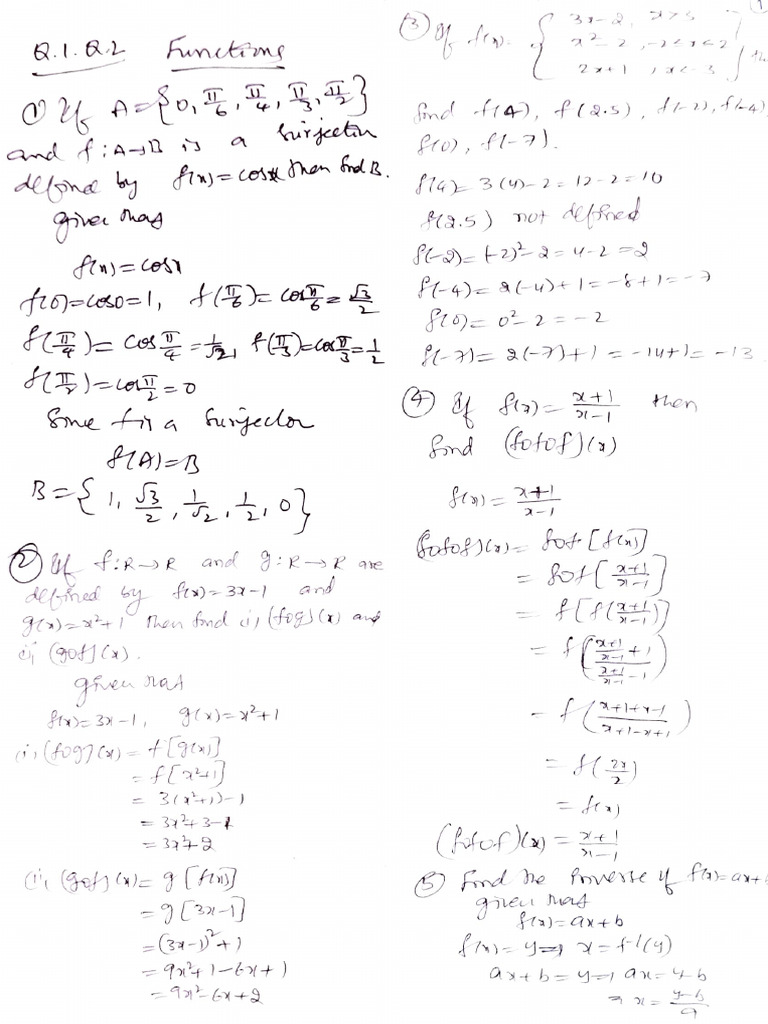 Q.1. Q.2 Functions
① If A = {0, π/6, π/4, π/3, π/2}
and f: A→B is a surjection
defined by f(x) = cosx then find B.
given that
f(x) = cosx
f(0) = cos0 = 1, f(π/6) = cos π/6 = √3/2
f(π/4) = cos π/4 = 1/√2, f(π/3) = cos π/3 = 1/2
f(π/2) = cos π/2 = 0
Since f is a surjection
f(A) = B
B = {1, √3/2, 1/√2, 1/2, 0}
② If f: R→R and g: R→R are
defined by f(x) = 3x-1 and
g(x) = x²+1 then find (i) (fog)(x) and
(ii) (gof)(x).
given that
f(x) = 3x-1, g(x) = x²+1
(i) (fog)(x) = f[g(x)]
= f[x²+1]
= 3(x²+1)-1
= 3x²+3-1
= 3x²+2
(ii) (gof)(x) = g[f(x)]
= g[3x-1]
= (3x-1)²+1
= 9x²+1-6x+1
= 9x²-6x+2
1
③ If f(x) = { 3x-2, x>3
x²-2, -2≤x≤2
2x+1, x<-3 }
find f(4), f(2.5), f(-2), f(-4)
f(0), f(-7).
f(4) = 3(4)-2 = 12-2 = 10
f(2.5) not defined
f(-2) = (-2)²-2 = 4-2 = 2
f(-4) = 2(-4)+1 = -8+1 = -7
f(0) = 0²-2 = -2
f(-7) = 2(-7)+1 = -14+1 = -13
④ If f(x) = (x+1)/(x-1) then
find (fofof)(x)
f(x) = (x+1)/(x-1)
(fofof)(x) = fof[f(x)]
= fof[(x+1)/(x-1)]
= f[f((x+1)/(x-1))]
= f(((x+1)/(x-1)+1)/((x+1)/(x-1)-1))
= f((x+1+x-1)/(x+1-x+1))
= f(2x/2)
= f(x)
(fofof)(x) = (x+1)/(x-1)
⑤ Find the inverse if f(x) = ax+
given that
f(x) = ax+b
f(x) = y ⇒ x = f-1(y)
ax+b = y ⇒ ax = y-b
⇒ x = (y-b)/a